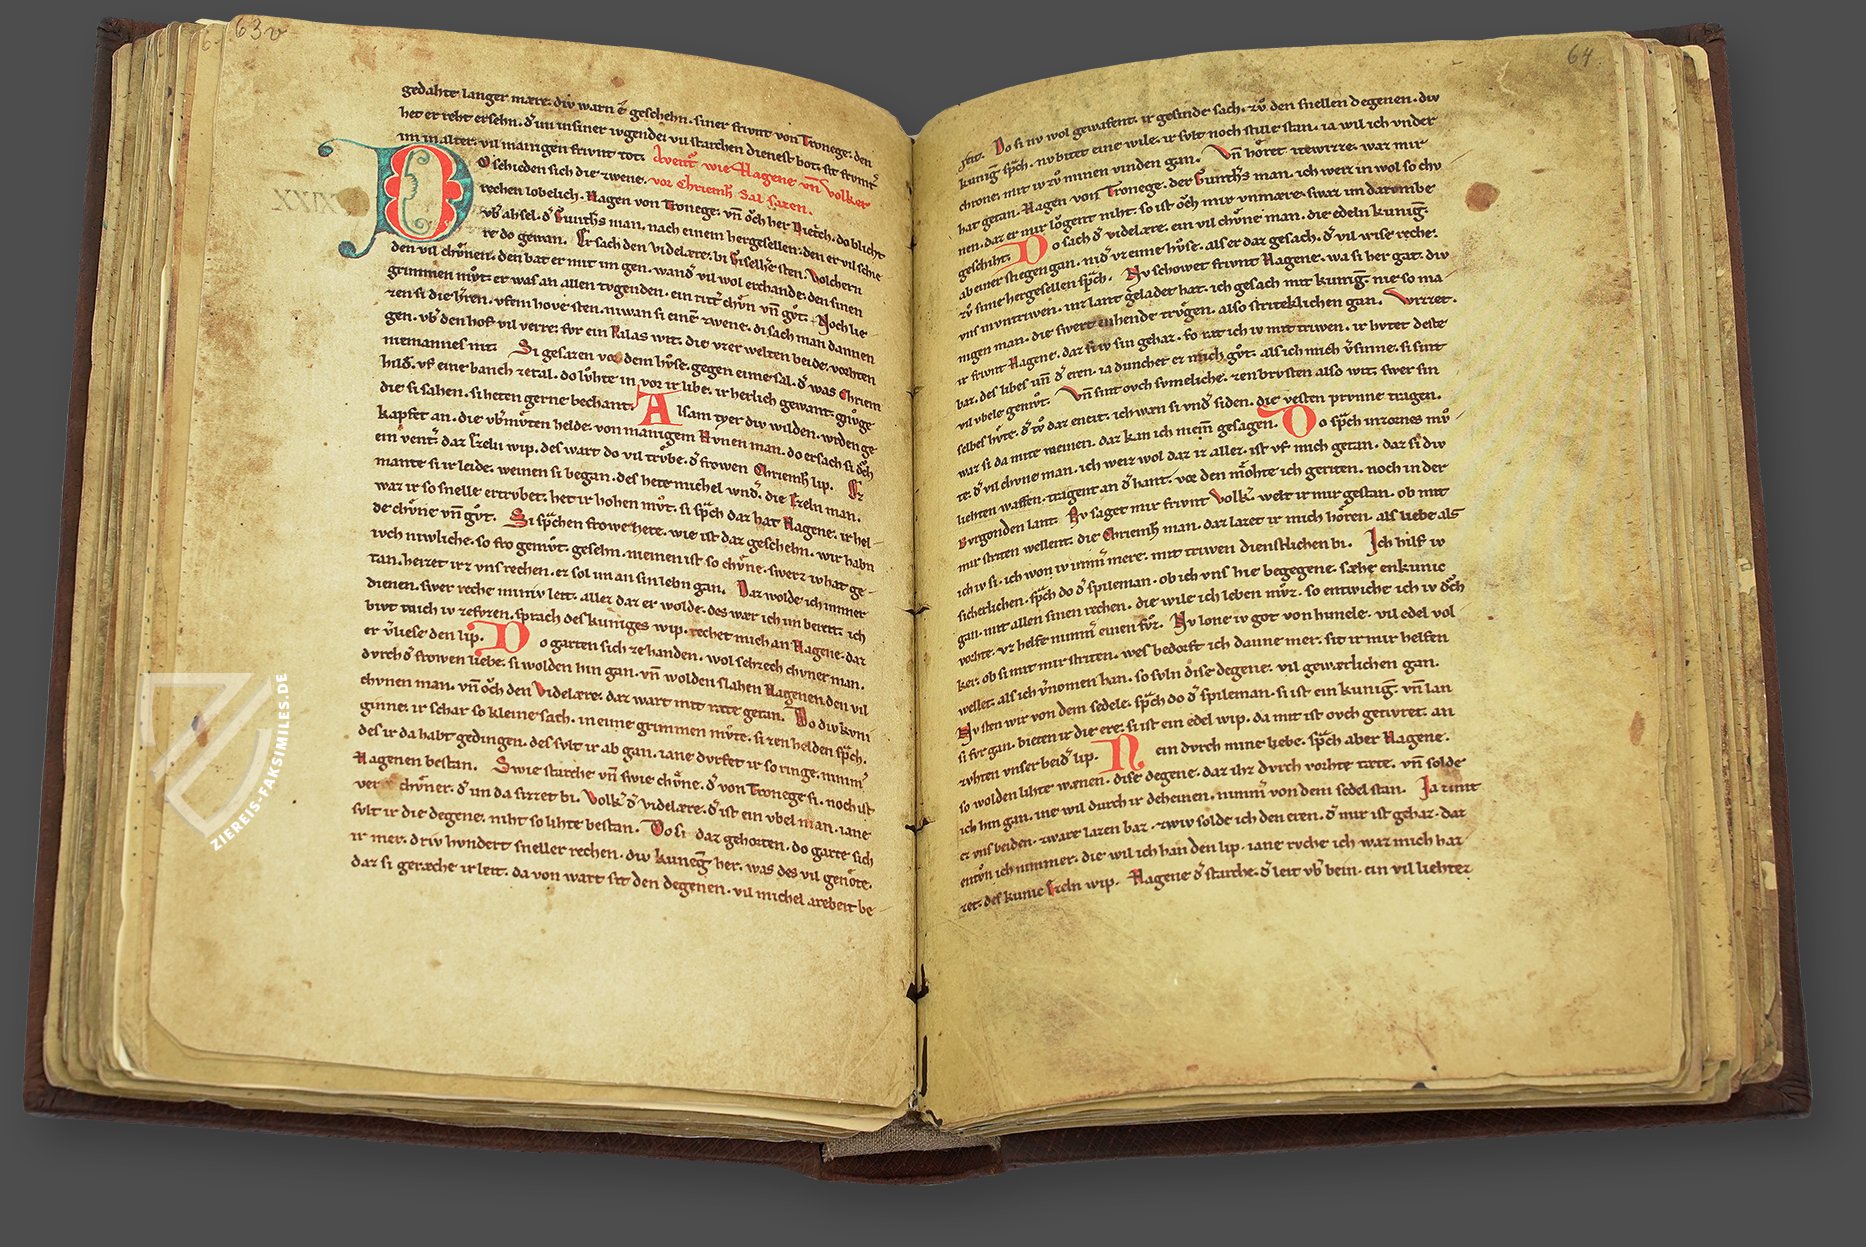 63v
gedahte langer mære. div warn e geschehn. siner frivnt von Tronege. den
het er reht ersehn. d̄ im in siner ivgende. vil starchen dienest bot. sit frvmt
im in alter. vil manigen frivnt tot. Aventv̄ wie Hagene vn̄ Volker
vor Chriemh̄ Sal sazen.
Do schieden sich die zwene.
rechen lobelich. Hagen von Tronege. vn̄ ǒch her Dietrich. do blicht
vb̄ ahsel. d̄ Gunthers man. nach einem hergesellen. den er vil schie
re do gewan. Er sach den videlære. bi Giselhere sten. Volchern
den vil chv̊nen. den bat er mit im gen. wand̄ vil wol erchande. den sinen
grimmen mv̊t. er was an allen tvgenden. ein ritt̄ chv̊n vn̄ gv̊t. Noch lie
zen si die h̄ren. vfem hove sten. niwan si eine zwene. di sach man dannen
gen. vb̄ den hof vil verre. fvr ein Palas wit. die vzer welten beide. vorhten
niemannes nit. Si gesazen vor dem hvse. gegen eime sal. d̄ was Chriem
hild̄. vf eine banch zetal. do lvhte in vor ir libe. ir herlich gewant. gnv̊ge
die si sahen. si heten gerne bechant. Alsam tyer div wilden. wrden ge
kapfet an. die vb̄mv̊ten helde. von manigem Hvnen man. do ersach si ǒch
ein venst̄ daz Ezeln wip. des wart do vil trv̊be. d̄ frowen Chriemh̄ lip. Ez
mante si ir leide. weinen si began. des hete michel wnd̄. die Ezeln man.
waz ir so snelle ertrvbet. het ir hohen mv̊t. si sp̄ch daz hat Hagene. ir hel-
de chv̊ne vn̄ gv̊t. Si sp̄chen frowe here. wie ist daz geschehn. wir habn
ivch niwliche. so fro gemv̊t. gesehn. niemen ist so chv̊ne. swerz iv hat ge-
tan. heizet irz vns rechen. ez sol im an sin lebn gan. Daz wolde ich immer
dienen. swer reche miniv leit. allez daz er wolde. des wær ich im bereit. ich
bivt mich iv zefvzen. sprach des kuniges wip. rechet mich an Hagene. daz
er v̄liese den lip. Do garten sich zehanden. wol sehzech chvner man.
dvrch d̄ frowen liebe. si wolden hin gan. vn̄ wolden slahen Hagenen. den vil
chvnen man. vn̄ ǒch den videlære. daz wart mit rate getan. Do div kvni
ginne. ir schar so kleine sach. in eime grimmen mv̊te. si zen helden sp̄ch.
des ir da habt gedingen. des svlt ir ab gan. iane dvrfet ir so ringe. nimm̄
Hagenen bestan. Swie starche vn̄ swie chv̊ne. d̄ von Tronege si. noch ist
verre chv̊ner. d̄ im da sizzet bi. Volk̄ d̄ videlære. d̄ ist ein vbel man. iane
svlt ir die degene. niht so lihte bestan. Do si daz gehorten. do garte sich
ir mer. driv hvndert sneller rechen. div kuneḡ her. was des vil genôte.
daz si geræche ir leit. da von wart sit den degenen. vil michel arebeit be
64
reit. Do si nv wol gewafent. ir gesinde sach. zv̊ den snellen degenen. div
kuniḡ sp̄ch. nv bitet eine wile. ir svlt noch stille stan. ia wil ich vnder
chrone. mit iv zv̊ minen vinden gan. Vn̄ hôret itewizze. waz mir
hat getan. Hagen von Tronege. der Gunthers man. ich weiz in wol so chv
nen. daz er mir lǒgent niht. so ist ǒch mir vnmære. swaz im darvmbe
geschiht. Do sach d̄ videlære. ein vil chv̊ne man. die edeln kuniḡ.
ab einer stiegen gan. nid̄ vz eime hv̊se. als er daz gesach. d̄ vil wise reche.
zv̊ sime hergesellen sp̄ch. Nv schowet frivnt Hagene. wa si her gat. div
vns mvntriwen. inz lant geladet hat. ich gesach mit kuniḡ. nie so ma
nigen man. die swert enhende trv̊gen. also striteklichen gan. Wizzet.
ir frivnt Hagene. daz si iv sin gehaz. so rat ich iv mit triwen. ir hvtet deste
baz. des libes vn̄ d̄ eren. ia dunchet ez mich gv̊t. als ich mich v̄sinne. si sint
vil vbele gemv̊t. Vn̄ sint ovch svmeliche. zen brvsten also wit. swer sin
selbes hv̊te. d̄ tv̊ daz enzit. ich wæn si vnd̄ siden. die vesten prvnne tragen.
waz si da mite meinen. daz kan ich niem̄ gesagen. Do sp̄ch inzornes mv̊
te. d̄ vil chvne man. ich weiz wol daz iz allez. ist vf mich getan. daz si div
liehten waffen. tragent an d̄ hant. vor den môhte ich geriten. noch in der
Bvrgonden lant. Nv saget mir frivnt Volk̄. welt ir mir gestan. ob mit
mir striten wellent. die Chriemh̄ man. daz lazet ir mich hôren. als liebe als
ich iv si. ich won iv imm̄ mere. mit triwen dienstlichen bi. Ich hilf iv
sicherlichen. sp̄ch do d̄ spileman. ob ich vns hie begegene. sæhe enkunic
gan. mit allen sinen rechen. die wile ich leben mv̊z. so entwiche ich iv dǒch
vorhte. vz helfe nimm̄ einen fv̊z. Nv lone iv got von himele. vil edel vol
ker. ob si mit mir striten. wes bedorft ich danne mer. sit ir mir helfen
wellet. als ich v̄nomen han. so svln dise degene. vil gewærlichen gan.
Nv sten wir von dem sedele. sp̄ch do d̄ spileman. si ist ein kuniḡ. vn̄ lan
si fvr gan. bieten ir die ere. si ist ein edel wip. da mit ist ovch getivret. an
zvhten vnser beid̄ lip. Nein dvrch mine liebe. sp̄ch aber Hagene.
so wolden lihte wænen. dise degene. daz ihz dvrch vorhte tæte. vn̄ solde
ich hin gan. ine wil durch ir deheinen. nimm̄ von dem sedel stan. Ja zimt
ez vns beiden. zware lazen baz. zwiv solde ich den eren. d̄ mir ist gehaz. daz
entv̊n ich nimmer. die wil ich han den lip. iane rvche ich waz mich haz
zet. des kunic Ezeln wip. Hagene d̄ starche. d̄ leit vb̄ bein. ein vil liehtez
ZIEREIS-FAKSIMILES.DE